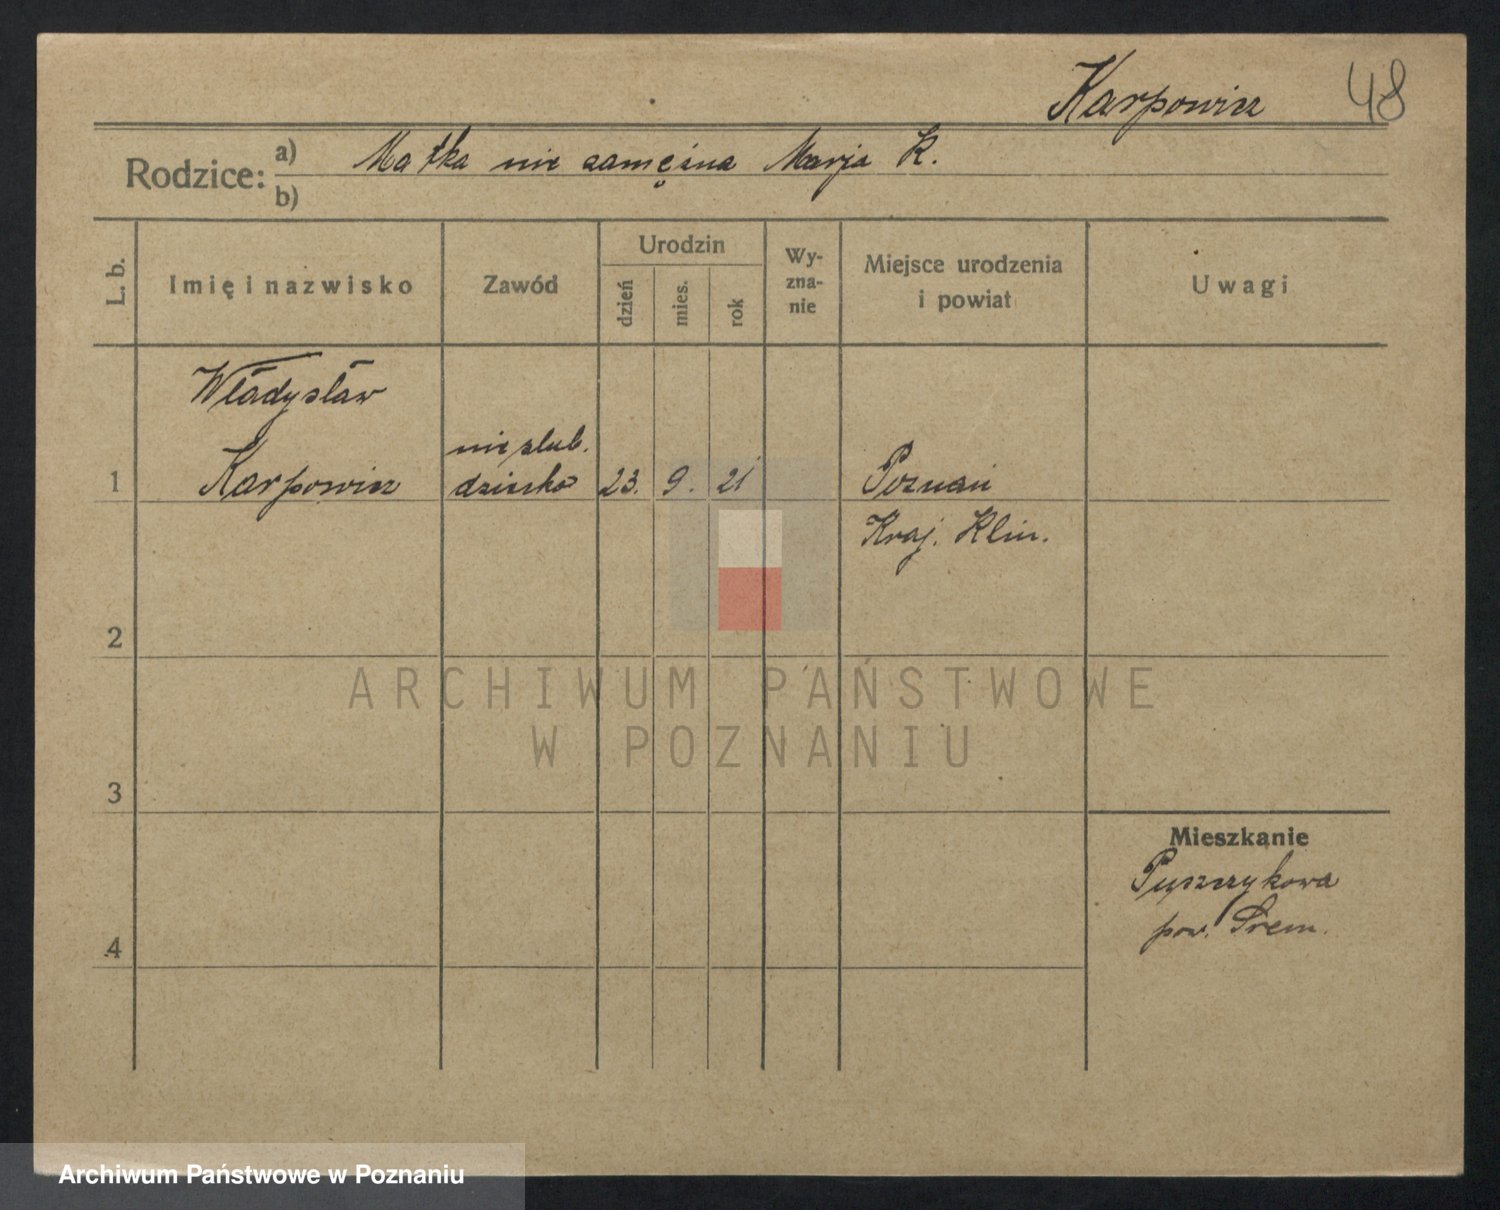 Karpowicz 48
Rodzice: a) Matka nie zamężna Marja K.
b)
L. b. Imię i nazwisko Zawód Urodzin dzień mies. rok Wy-zna-nie Miejsce urodzenia i powiat Uwagi
Władysław
nieślub.
1 Karpowicz dziecko 23. 9. 21 Poznań
Kraj. Klin.
2
ARCHIWUM PAŃSTWOWE
W POZNANIU
3
Mieszkanie
Puszczykowa
pow. Śrem.
4
Archiwum Państwowe w Poznaniu